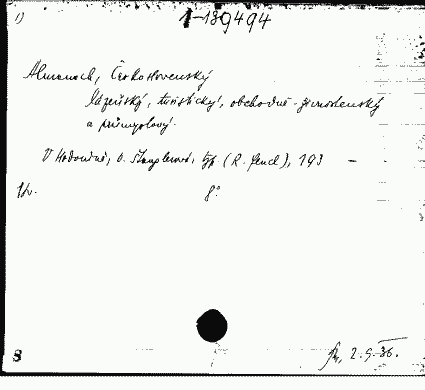 1) 1-189494
Almanach, Československý
lázeňský, turistický, obchodně-živnostenský
a průmyslový.
V Hodoníně, typ. (R. Fencl), 193 -
8°
8 2.9.36.